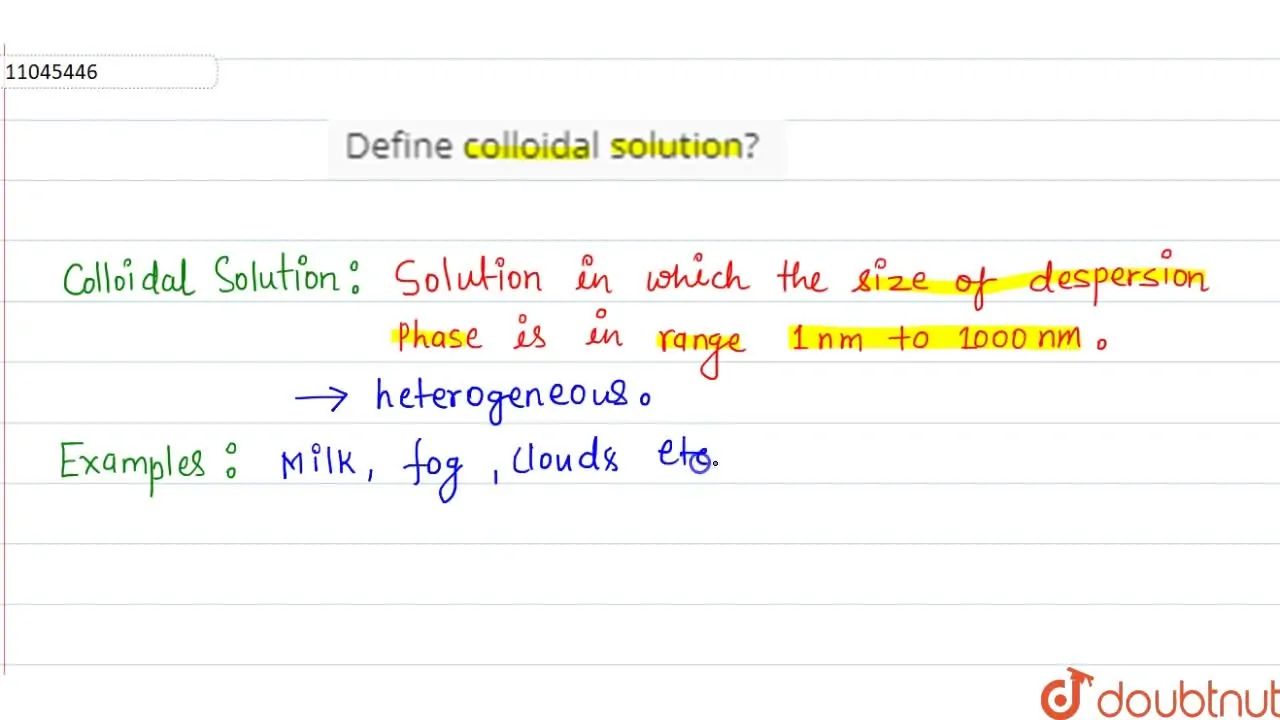 11045446
Define colloidal solution?
Colloidal Solution: Solution in which the size of despersion
Phase is in range 1nm to 1000nm.
→ heterogeneous.
Examples: Milk, fog, clouds etc.
doubtnut